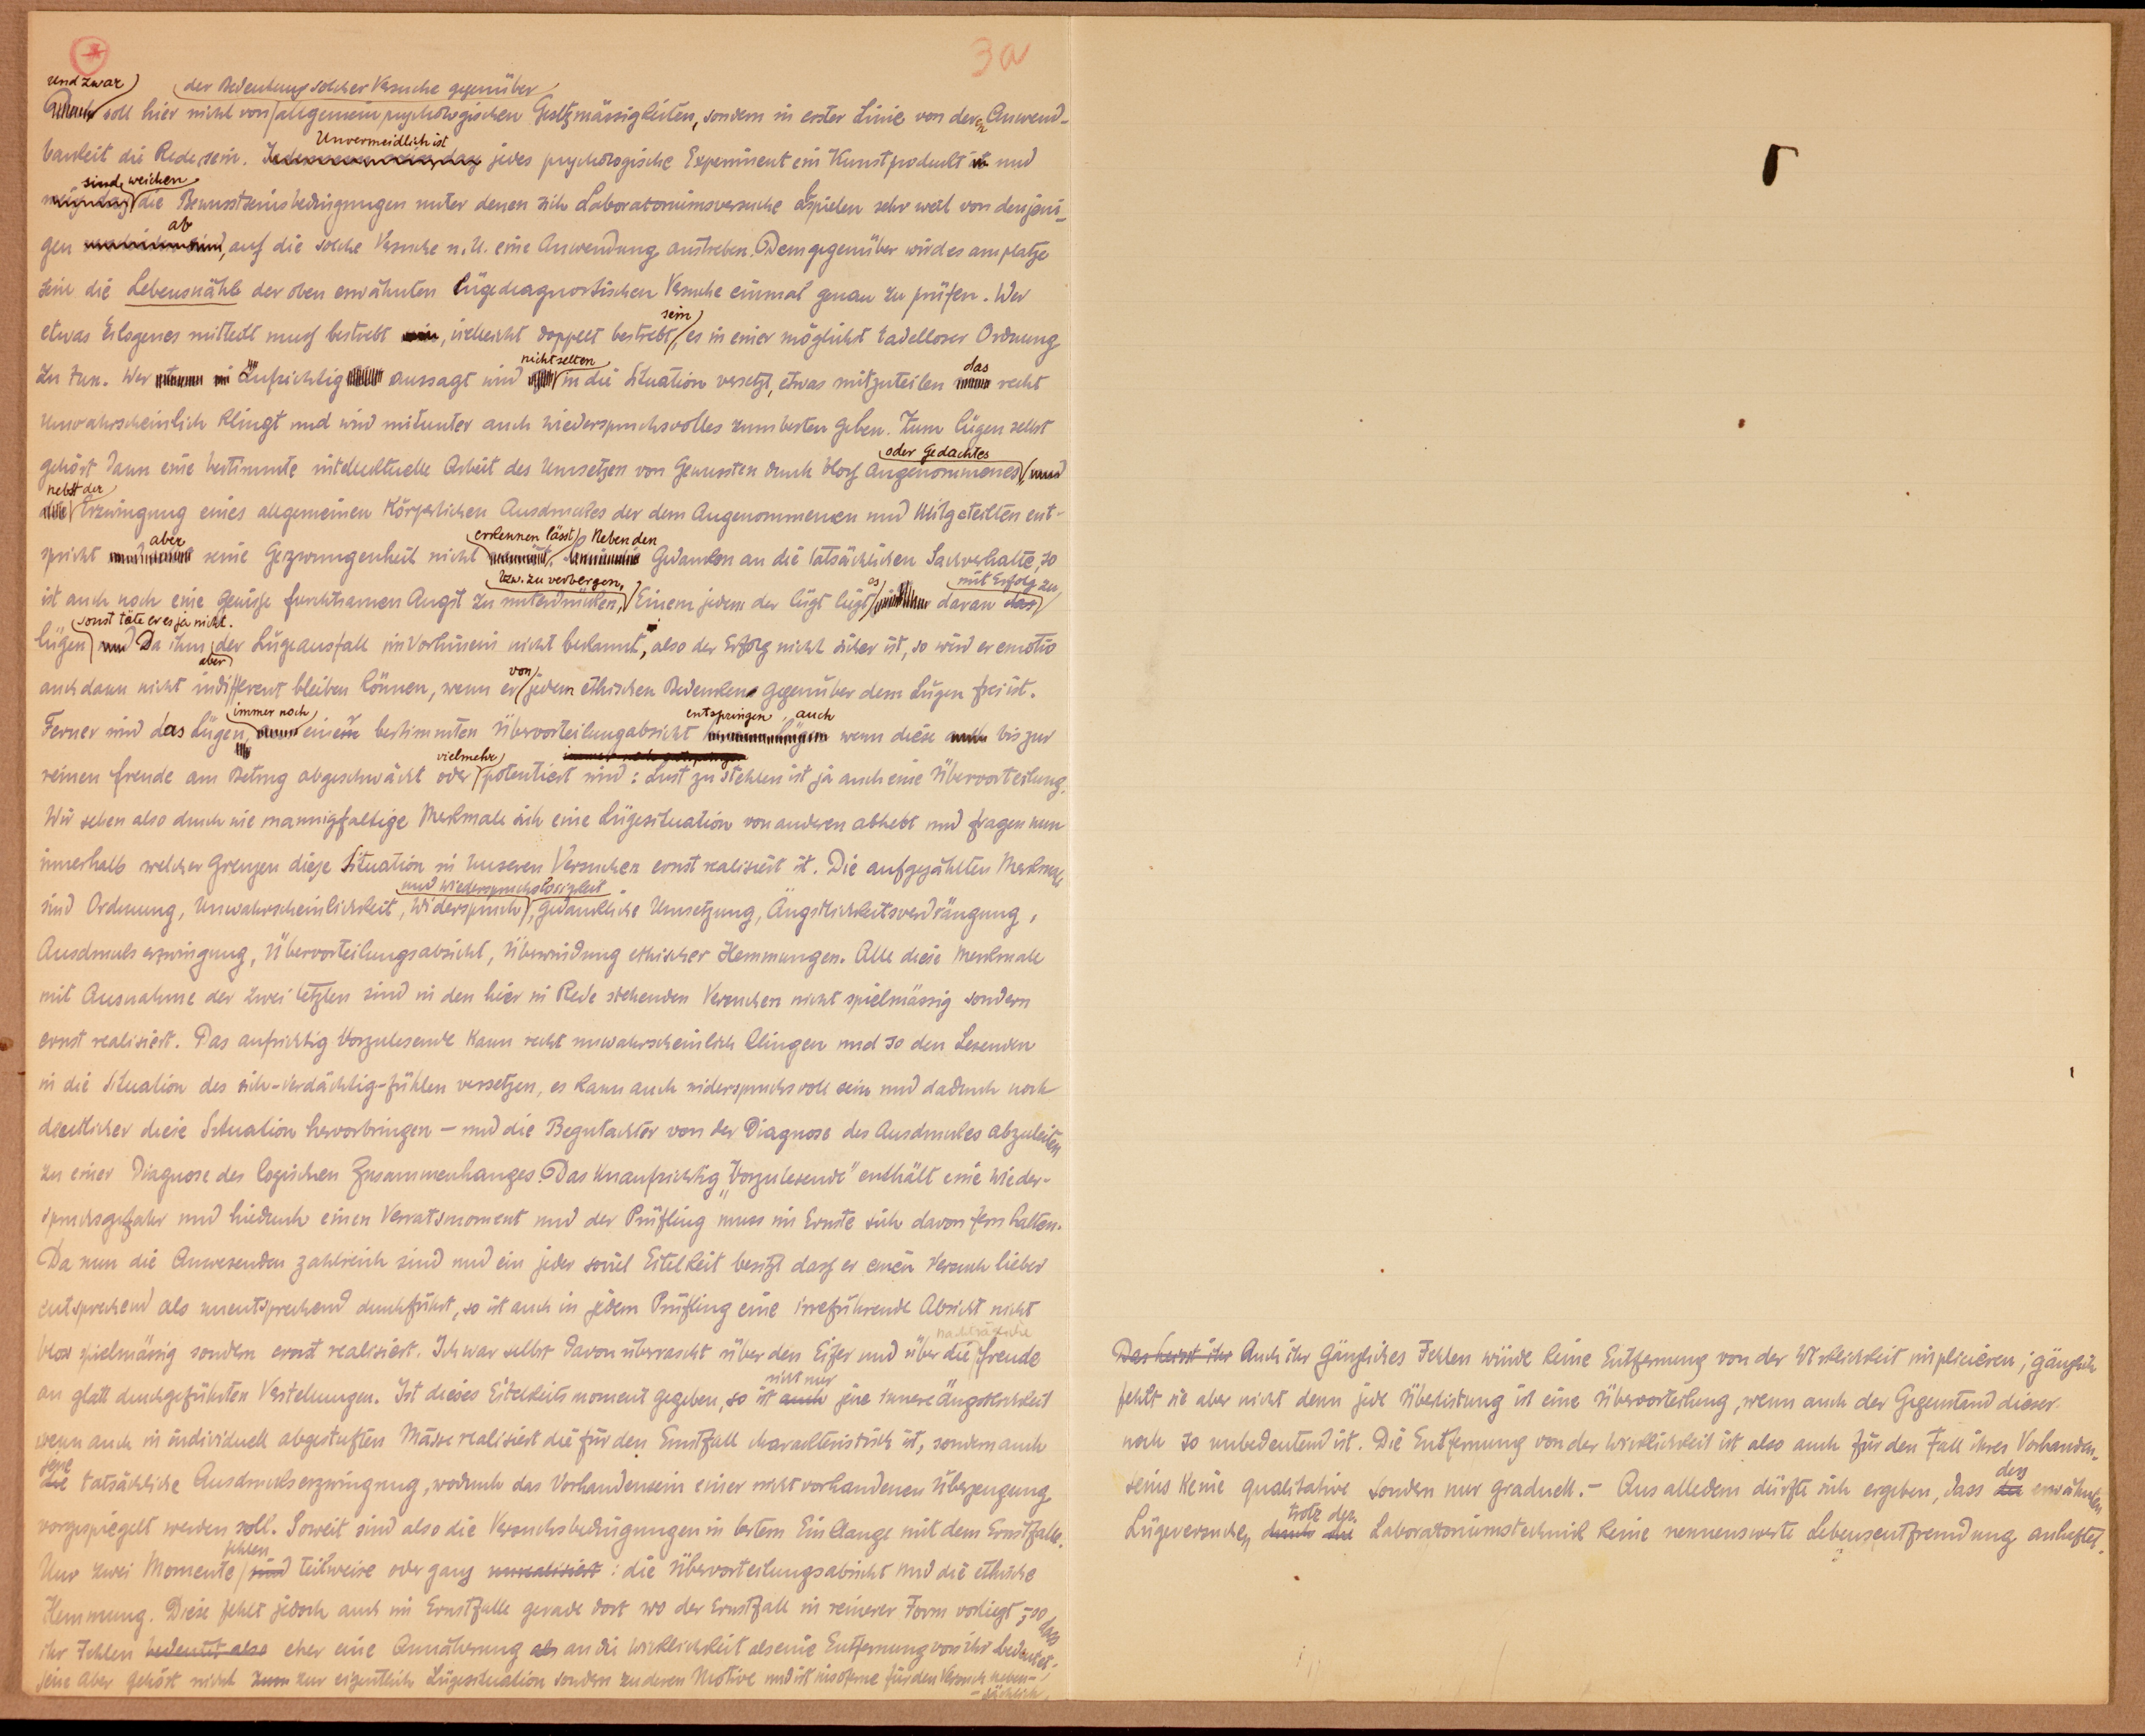 3a
und zwar
der Bedeutung solcher Versuche gegenüber
soll hier nicht von allgemein psychologischen Gesetzmässigkeiten, sondern in erster Linie von deren Anwend-
barkeit die Rede sein. Unvermeidlich ist jedes psychologische Experiment ein Kunstprodukt und
sind, weichen die Bewusstseinsbedingungen unter denen sich Laboratoriumsversuche abspielen sehr weit von denjeni-
gen ab, auf die solche Versuche u. U. eine Anwendung anstreben. Demgegenüber wird es am platze
sein die Lebensnähe der oben erwähnten lügediagnostischen Versuche einmal genau zu prüfen. Wer
etwas Erlogenes mitteilt muss bestrebt, vielleicht doppelt bestrebt sein, es in einer möglichst tadelloser Ordnung
zu tun. Wer aufrichtig aussagt wird nicht selten in die Situation versetzt, etwas mitzuteilen das recht
unwahrscheinlich klingt und wird mitunter auch wiederspruchsvolles zum besten geben. Zum lügen selbst
gehört dann eine bestimmte intellektuelle Arbeit des Umsetzen von Gewussten durch bloss Angenommenes oder Gedachtes,
nebst der Erzwingung eines allgemeinen körperlichen Ausdruckes der dem Angenommenen und Mitgeteilten ent-
spricht aber seine Gezwungenheit nicht erkennen lässt. Neben den Gedanken an die tatsächlichen Sachverhalte, so
ist auch noch eine gewisse furchtsamen Angst zu unterdrücken, bzw. zu verbergen. Einem jedem der lügt liegt es daran mit Erfolg zu
lügen sonst täte er es ja nicht. Da ihm aber der Lügeausfall im Vorhinein nicht bekannt, also der Erfolg nicht sicher ist, so wird er emotiv
auch dann nicht indifferent bleiben können, wenn er von jedem ethischen Bedenken gegenüber dem Lügen frei ist.
Ferner wird das Lügen immer noch einer bestimmten Übervorteilungabsicht entspringen, auch wenn diese bis zur
reinen freude am Betrug abgeschwächt oder vielmehr potentiert wird: Lust zu stehlen ist ja auch eine Übervorteilung.
Wir sehen also durch wie mannigfaltige Merkmale sich eine Lügesituation von anderen abhebt und fragen nun
innerhalb welcher Grenzen diese Situation in unseren Versuchen ernst realisiert ist. Die aufgezählten Merkmale
sind Ordnung, Unwahrscheinlichkeit, Widerspruch und Wiederspruchslosigkeit, gedankliche Umsetzung, Ängstlichkeitsverdrängung,
Ausdruckserzwingung, Übervorteilungsabsicht, Überwindung ethischer Hemmungen. Alle diese Merkmale
mit Ausnahme der zwei letzten sind in den hier in Rede stehenden Versuchen nicht spielmässig sondern
ernst realisiert. Das aufrichtig Vorzulesende kann recht unwahrscheinlich klingen und so den Lesenden
in die Situation des sich-verdächtig-fühlen versetzen, es kann auch widerspruchsvoll sein und dadurch noch
deutlicher diese Situation hervorbringen – und die Begutachter von der Diagnose des Ausdruckes abzuleiten
zu einer Diagnose des logischen Zusammenhanges. Das Unaufrichtig „Vorzulesende" enthält eine Wieder-
spruchsgefahr und hiedurch einen Verratsmoment und der Prüfling muss im Ernste sich davon fern halten.
Da nun die Anwesenden zahlreich sind und ein jeder soviel Eitelkeit besitzt dass er einen Versuch lieber
entsprechend als unentsprechend durchführt, so ist auch in jedem Prüfling eine irreführende Absicht nicht
blos spielmässig sondern ernst realisiert. Ich war selbst davon überrascht über den Eifer und über die nachträgliche freude
an glatt durchgeführten Verstellungen. Ist dieses Eitelkeitsmoment gegeben, so ist nicht nur jene innere Ängstlichkeit
wenn auch in individuell abgestuften Masse realisiert die für den Ernstfall charakteristisch ist, sondern auch
jene tatsächliche Ausdruckserzwingung, wodurch das Vorhandensein einer nicht vorhandenen Überzeugung
vorgespiegelt werden soll. Soweit sind also die Versuchsbedingungen in bestem Einklange mit dem Ernstfalle.
Nur zwei Momente fehlen teilweise oder ganz: die Übervorteilungsabsicht und die ethische
Hemmung. Diese fehlt jedoch auch im Ernstfalle gerade dort wo der Ernstfall in reinerer Form vorliegt, so dass
ihr Fehlen eher eine Annäherung an die Wirklichkeit als eine Entfernung von ihr bedeutet;
jene aber gehört nicht zur eigentlich Lügesituation sondern zu deren Motive und ist insoferne für den Versuch neben-
sächlich.
Das heisst ihr Auch ihr gänzliches Fehlen würde keine Entfernung von der Wirklichkeit implicieren; gänzlich
fehlt sie aber nicht denn jede Überlistung ist eine Übervorteilung, wenn auch der Gegenstand dieser
noch so unbedeutend ist. Die Entfernung von der Wirklichkeit ist also auch für den Fall ihres Vorhanden-
seins keine qualitative sondern nur graduell. – Aus alledem dürfte sich ergeben, dass den erwähnten
Lügeversuchen trotz der Laboratoriumstechnik keine nennenswerte Lebensentfremdung anheftet.